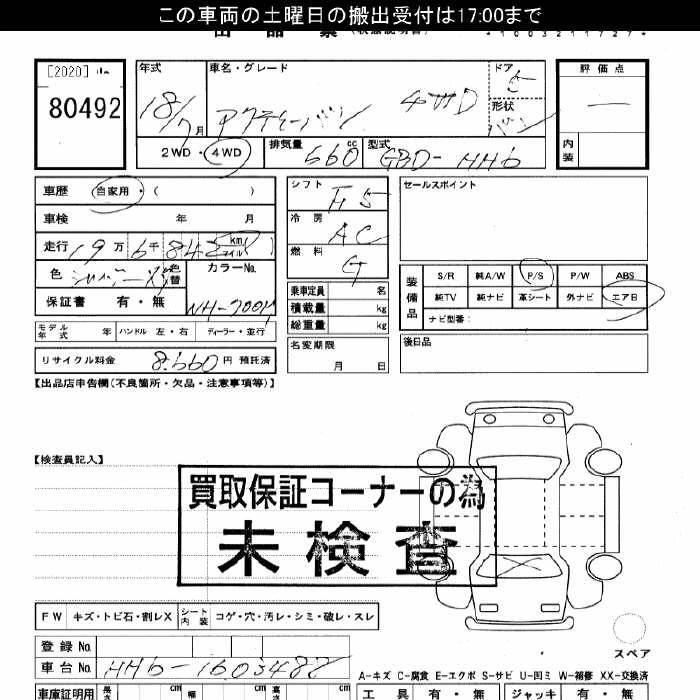 この車両の土曜日の搬出受付は17:00まで
出品票 (状態説明書)
[2020]
80492
年式 車名・グレード ドア 5
18/7月 アクティーバン 4WD 形状 バン
2WD・4WD 排気量 660 cc 型式 GBD-HH6
評価点
―
内装
車歴 自家用・( )
車検 年 月
走行 19万6千842 km マイル
色 シルバーM 色替 カラーNo.
保証書 有・無 NH-700M
モデル年式 年 ハンドル 左・右 ディーラー・並行
リサイクル料金 8,660円 預託済
シフト F5
冷房 AC
燃料 G
乗車定員 名
積載量 kg
総重量 kg
名変期限
月 日
セールスポイント
装備品 S/R 純A/W P/S P/W ABS
純TV 純ナビ 革シート 外ナビ エアB
ナビ型番:
後日品
【出品店申告欄(不良箇所・欠品・注意事項等)】
【検査員記入】
買取保証コーナーの為
未検査
FW キズ・トビ石・割レX シート内装 コゲ・穴・汚レ・シミ・破レ・スレ
スペア
登録No.
車台No. HH6-1603487
A-キズ C-腐食 E-エクボ S-サビ U-凹ミ W-補修 XX-交換済
車庫証明用 長さ cm 幅 cm 高さ cm
工具 有・無 ジャッキ 有・無